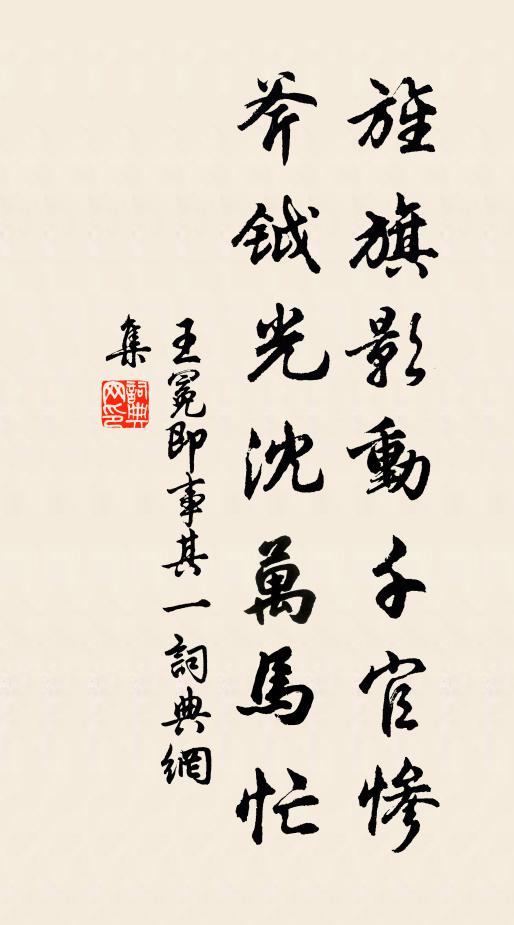 旌旗影動千官慘
斧鉞光沈萬馬忙
王冕即事其一詞典網
集
詞典
网印